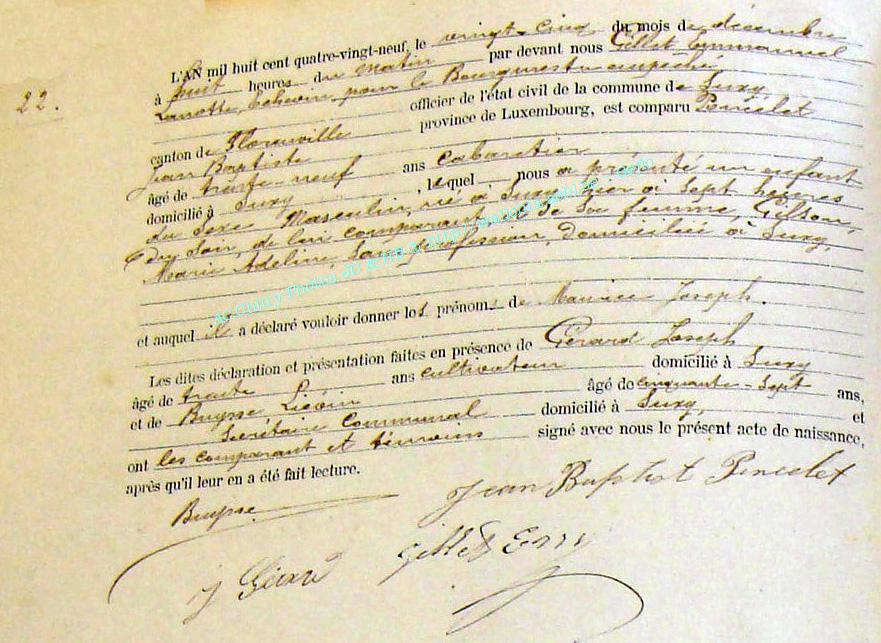 22.
L'AN mil huit cent quatre-vingt-neuf, le vingt-cinq du mois de décembre
à huit heures du matin par devant nous Gillet Emmanuel
Lanotte, échevin, pour le Bourgmestre empeché
officier de l'état civil de la commune de Suxy
canton de Florenville province de Luxembourg, est comparu Poncelet
Jean Baptiste
âgé de trente neuf ans cabaretier
domicilié à Suxy, lequel nous a présenté un enfant
du sexe Masculin, né à Suxy, hier à Sept heures
du Soir, de lui comparant et de Sa femme, Gilson,
Marie Adeline, Sans profession, domiciliée à Suxy,
et auquel il a déclaré vouloir donner les prénoms de Maurice Joseph.
Les dites déclaration et présentation faites en présence de Gérard Joseph
âgé de trente ans cultivateur domicilié à Suxy
et de Buysse Liévin âgé de cinquante-Sept ans,
Secrétaire Communal domicilié à Suxy, et
ont les comparant et témoins signé avec nous le présent acte de naissance,
après qu'il leur en a été fait lecture.
Jean Baptist Poncelet
Buysse
J Gérard Gillet